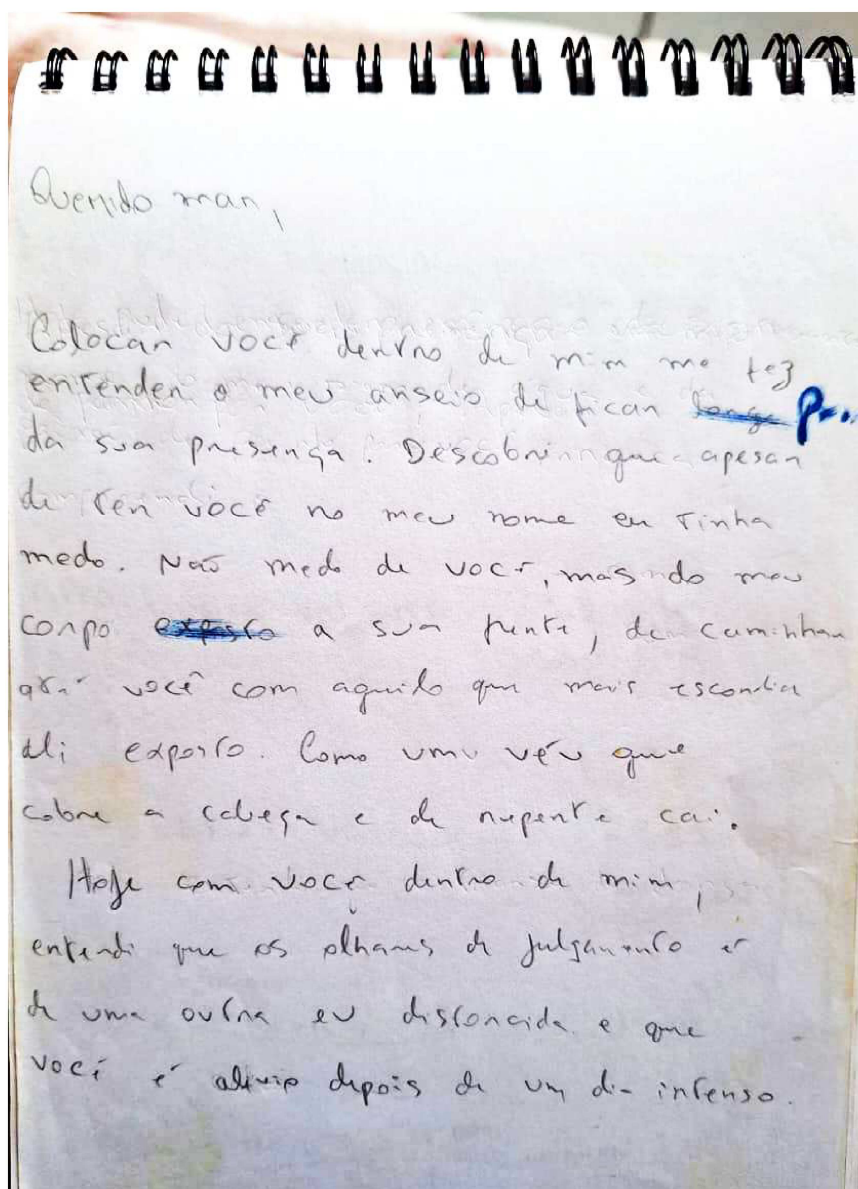 Querido mar,
Colocar você dentro de mim me fez
entender o meu anseio de ficar longe
da sua presença. Descobri que apesar
de ter você no meu nome eu tinha
medo. Não medo de você, mas do meu
corpo exposto a sua frente, de caminhar
até você com aquilo que mais escondia
ali exposto. Como um véu que
cobre a cabeça e de repente cai.
Hoje com você dentro de mim,
entendi que os olhares de julgamento é
de uma outra eu distorcida e que
você é alivio depois de um dia intenso.